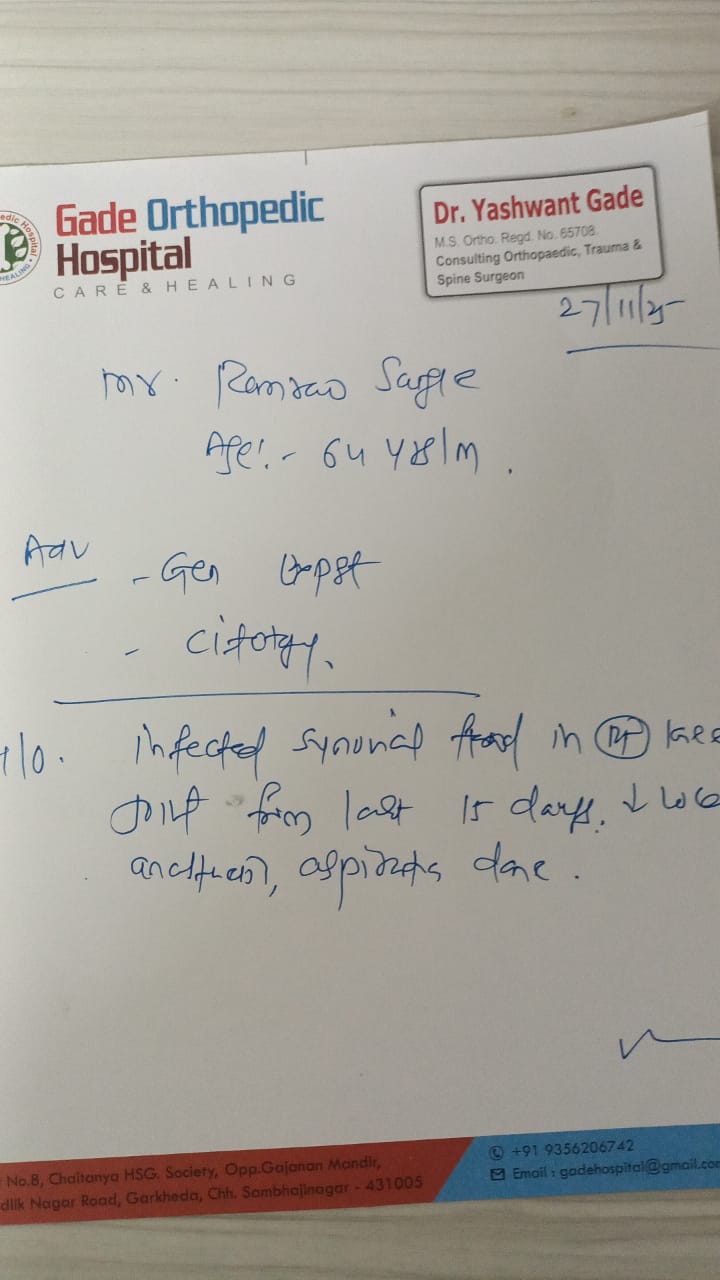 Gade Orthopedic
Hospital
CARE & HEALING
Dr. Yashwant Gade
M.S. Ortho. Regd. No. 65708.
Consulting Orthopaedic, Trauma &
Spine Surgeon
27/11/25
Mr. Ramrao
Age:- 64 yrs/M.
Adv
- Gen
-
H/O. infected synovial in Rt knee
joint from last 15 days. ↓
done.
No.8, Chaitanya HSG. Society, Opp.Gajanan Mandir,
Nagar Road, Garkheda, Chh. Sambhajinagar - 431005
+91 9356206742
Email : gadehospital@gmail.com